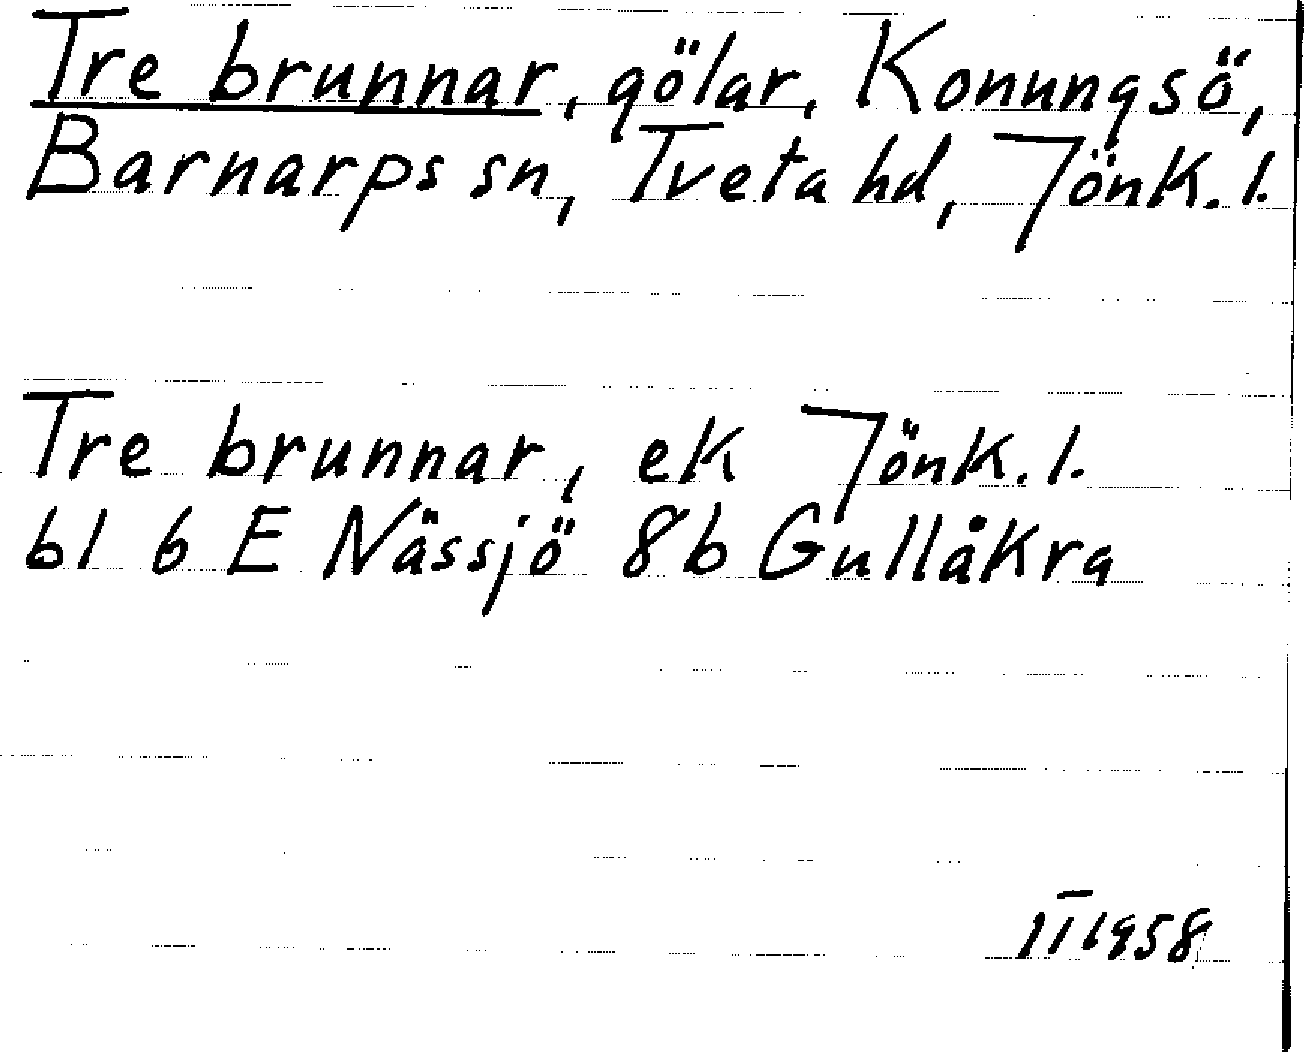 Tre brunnar, gölar, Konungsö,
Barnarps sn, Tveta hd, Jönk. l.
Tre brunnar, ek Jönk. l.
bl 6 E Nässjö 8b Gullåkra
1T1958